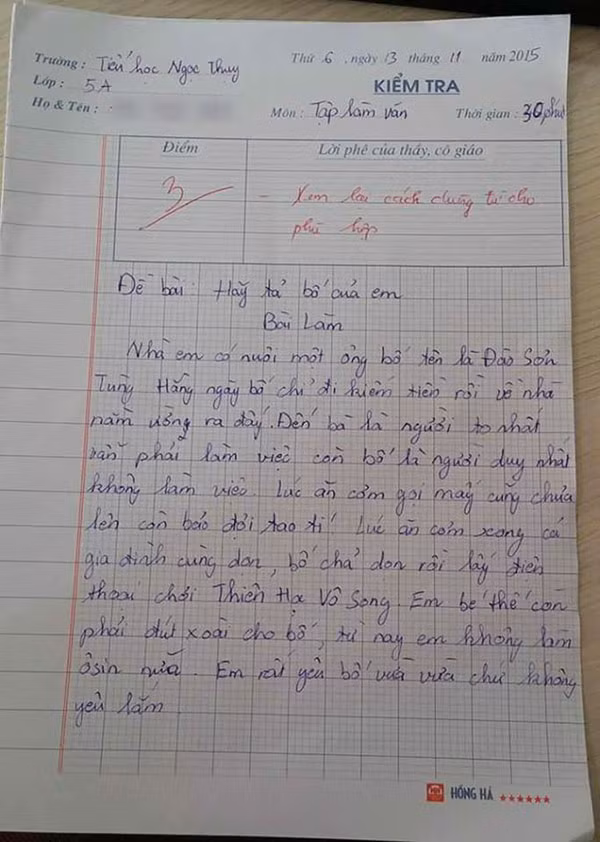 Trường : Tiểu học Ngọc Thụy
Thứ 6 , ngày 13 tháng 11 năm 2015
Lớp : 5A
KIỂM TRA
Họ & Tên :
Môn : Tập làm văn
Thời gian : 30 phút
Điểm
Lời phê của thầy, cô giáo
3
- Xem lại cách dùng từ cho
phù hợp
Đề bài: Hãy tả bố của em
Bài Làm
Nhà em có nuôi một ông bố tên là Đào Sơn
Tùng Hằng ngày bố chỉ đi kiếm tiền rồi về nhà
nằm ưỡng ra đấy. Đến bà là người to nhất
vẫn phải làm việc còn bố là người duy nhất
không làm việc. Lúc ăn cơm gọi mấy cũng chưa
lên còn bảo đợi tao tí! Lúc ăn cơm xong cả
gia đình cùng dọn, bố chả dọn rồi lấy điện
thoại chơi Thiên Hạ Vô Song. Em bé thế còn
phải đút xoài cho bố, từ nay em không làm
ôsin nữa. Em rất yêu bố vừa vừa chứ không
yêu lắm
HỒNG HÀ ★★★★★★